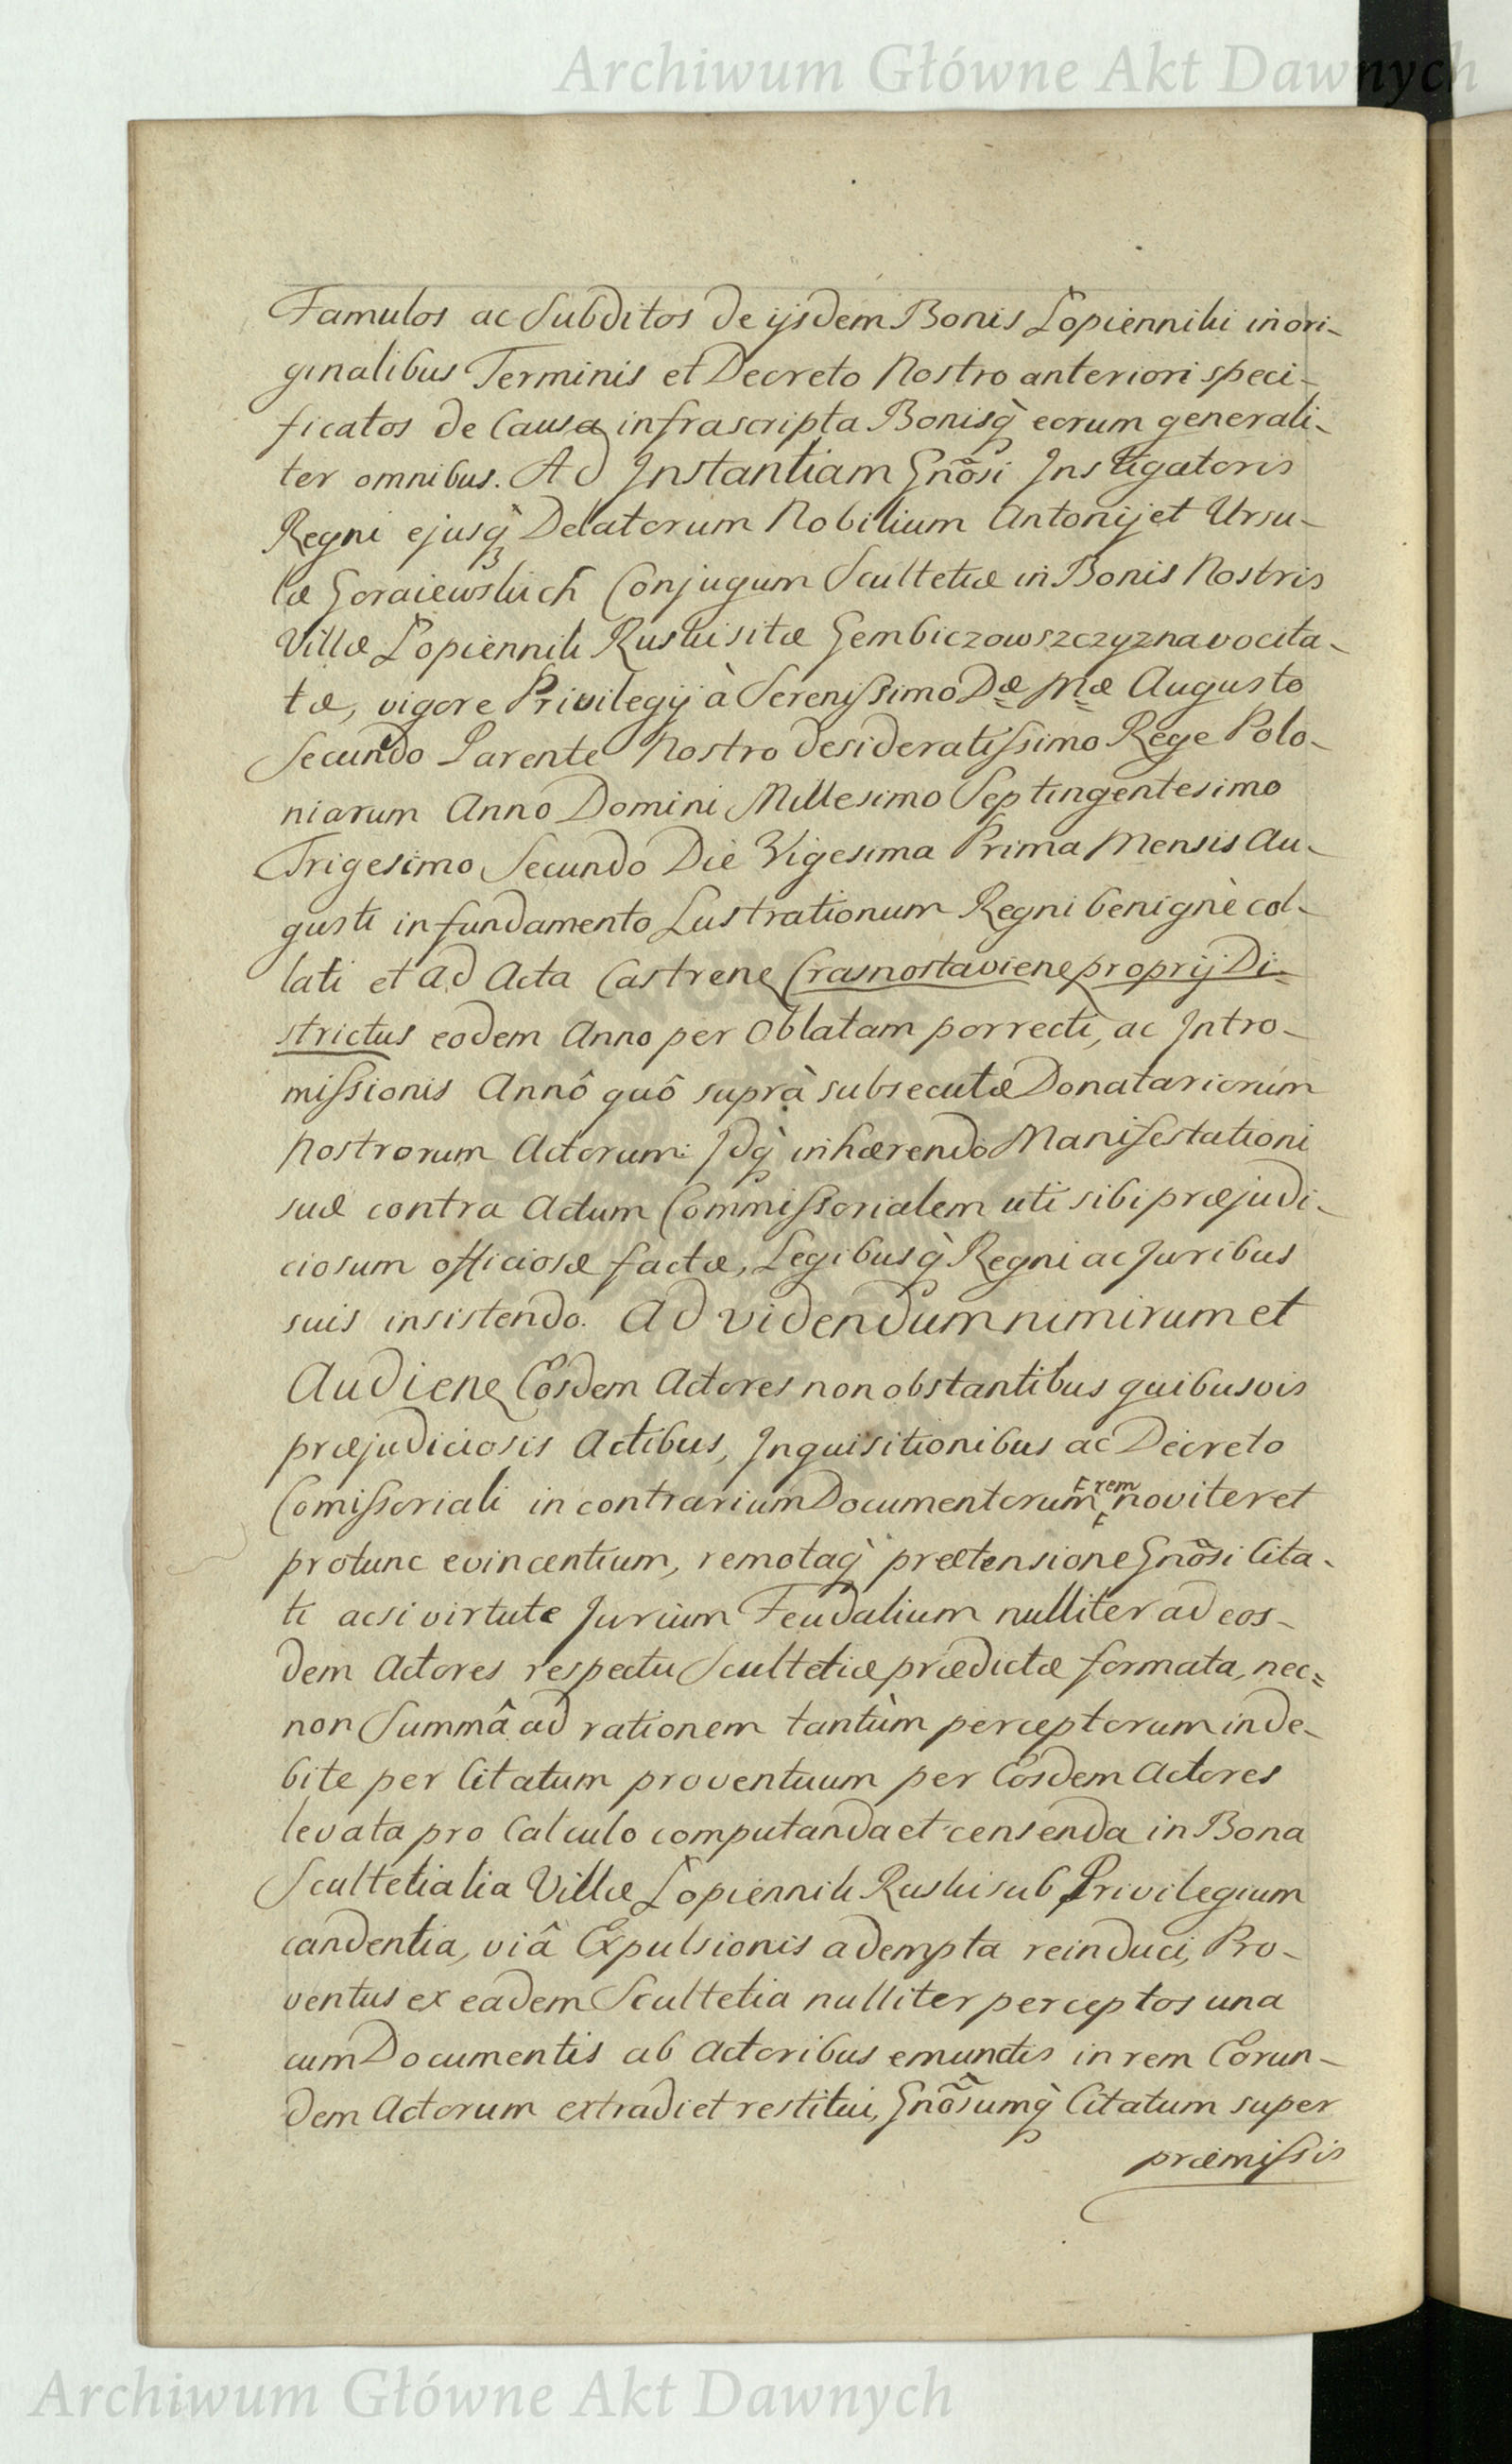 Archiwum Główne Akt Dawnych
Famulos ac Subditos de ijsdem Bonis Łopienniki in ori-
ginalibus Terminis et Decreto Nostro anteriori speci-
ficatos de Causa infrascripta Bonisq̀ eorum generali-
ter omnibus. Ad Instantiam Gnõsi Instigatoris
Regni ejusq̀ Delatorum Nobilium Antonij et Ursu-
læ Goraiewskich Conjugum Scultetiæ in Bonis Nostris
Villæ Łopiennik Ruski sitæ Gembiczowszczyzna vocita-
tæ, vigore Privilegij à Serenissimo Dæ Mæ Augusto
Secundo Parente Nostro desideratissimo Rege Polo-
niarum Anno Domini Millesimo Septingentesimo
Trigesimo Secundo Die Vigesima Prima Mensis Au-
gusti in fundamento Lustrationum Regni benignè col-
lati et ad Acta Castren Crasnostavien proprij Di-
strictus eodem Anno per Oblatam porrecti, ac Intro-
missionis Annô quô suprà subsecutæ Donatariorum
Nostrorum Actorum: Idq̀ inhærendo Manifestationi
suæ contra Actum Commissorialem uti sibi præjudi-
ciosum officiosæ factæ, Legibusq̀ Regni ac Juribus
suis insistendo. Ad videndum nimirum et
Audien Eosdem Actores non obstantibus quibusvis
præjudiciosis Actibus, Inquisitionibus ac Decreto
Comissoriali in contrarium Documentorum rem noviter et
protunc evincentium, remotaq̀ prætensione Gnõsi Cita-
ti acsi virtute Jurium Feudalium nulliter ad eos-
dem Actores respectu Scultetiæ prædictæ formata, nec=
non Summâ ad rationem tantùm perceptorum inde-
bite per Citatum proventuum per Eosdem Actores
levata pro Calculo computanda et censenda in Bona
Scultetialia Villæ Łopiennik Ruski sub Privilegium
candentia, viâ Expulsionis adempta reinduci, Pro-
ventus ex eadem Scultetia nulliter perceptos una
cum Documentis ab Actoribus emunctis in rem Eorun-
dem Actorum extradi et restitui, Gnõsumq̀ Citatum super
præmissis
Archiwum Główne Akt Dawnych